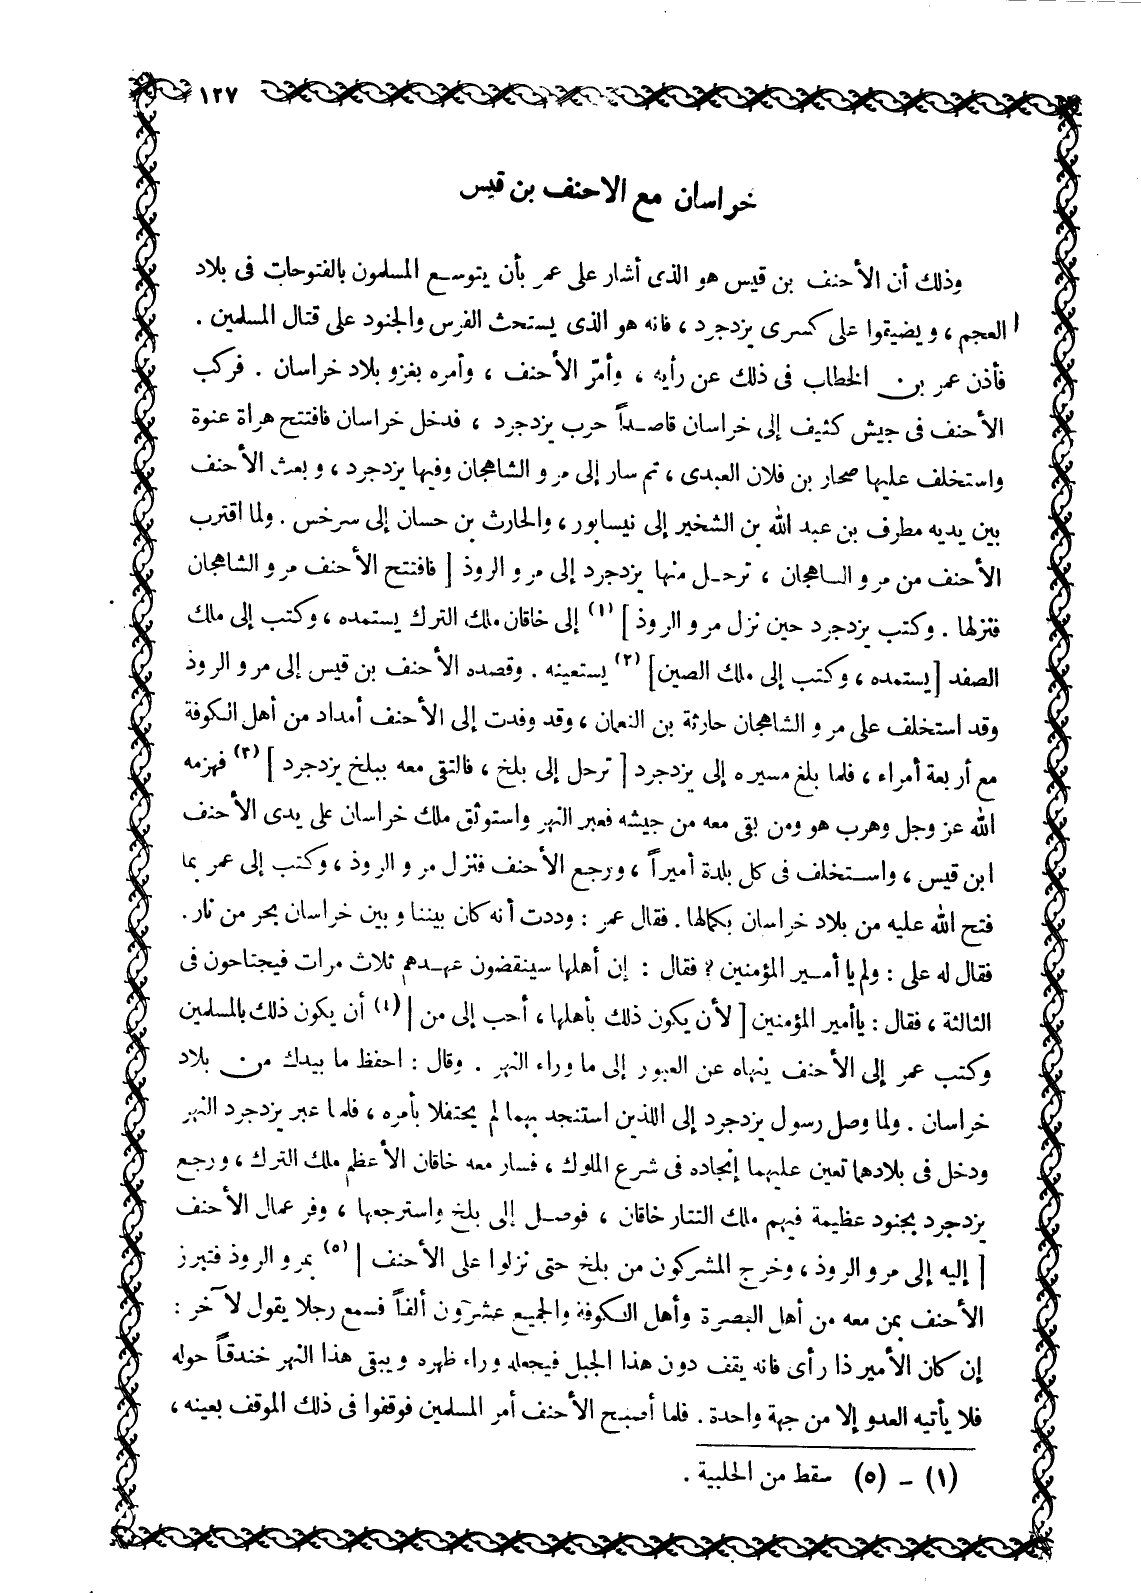 ١٢٧
خراسان مع الاحنف بن قيس
وذلك أن الأحنف بن قيس هو الذى أشار على عمر بأن يتوسع المسلمون بالفتوحات فى بلاد
العجم ، ويضيقوا على كسرى يزدجرد ، فانه هو الذى يستحث الفرس والجنود على قتال المسلمين .
فأذن عمر بن الخطاب فى ذلك عن رأيه ، وأمّر الأحنف ، وأمره بغزو بلاد خراسان . فركب
الأحنف فى جيش كثيف إلى خراسان قاصداً حرب يزدجرد ، فدخل خراسان فافتتح هراة عنوة
واستخلف عليها صحار بن فلان العبدى ، تم سار إلى مرو الشاهجان وفيها يزدجرد ، وبعث الأحنف
بين يديه مطرف بن عبد الله بن الشخير إلى نيسابور ، والحارث بن حسان إلى سرخس . ولما اقترب
الأحنف من مرو الساهجان ، ترحل منها يزدجرد إلى مرو الروذ [ فافتتح الأحنف مرو الشاهجان
فنزلها . وكتب يزدجرد حين نزل مرو الروذ ] (١) إلى خاقان ملك الترك يستمده ، وكتب إلى ملك
الصفد [ يستمده ، وكتب إلى ملك الصين ] (٢) يستعينه . وقصده الأحنف بن قيس إلى مرو الروذ
وقد استخلف على مرو الشاهجان حارثة بن النعمان ، وقد وفدت إلى الأحنف أمداد من أهل الكوفة
مع أربعة أمراء ، فلما بلغ مسيره إلى يزدجرد [ ترحل إلى بلخ ، فالتقى معه ببلخ يزدجرد ] (٣) فهزمه
الله عز وجل وهرب هو ومن بقى معه من جيشه فعبر النهر واستوثق ملك خراسان على يدى الأحنف
ابن قيس ، واستخلف فى كل بلدة أميراً ، ورجع الأحنف فنزل مرو الروذ ، وكتب إلى عمر بما
فتح الله عليه من بلاد خراسان بكمالها . فقال عمر : وددت أنه كان بيننا وبين خراسان بحر من نار .
فقال له على : ولم يا أمير المؤمنين ؟ فقال : إن أهلها سينقضون عهدهم ثلاث مرات فيجتاحون فى
الثالثة ، فقال : يا أمير المؤمنين [ لأن يكون ذلك بأهلها ، أحب إلى من ] (٤) أن يكون ذلك بالمسلمين
وكتب عمر إلى الأحنف ينهاه عن العبور إلى ما وراء النهر . وقال : احفظ ما بيدك من بلاد
خراسان . ولما وصل رسول يزدجرد إلى اللذين استنجد بهما لم يحتفلا بأمره ، فلما عبر يزدجرد النهر
ودخل فى بلادهما تعين عليهما إنجاده فى شرع الملوك ، فسار معه خاقان الأعظم ملك الترك ، ورجع
يزدجرد بجنود عظيمة فيهم ملك التتار خاقان ، فوصل إلى بلخ واسترجعها ، وفر عمال الأحنف
[ إليه إلى مرو الروذ ، وخرج المشركون من بلخ حتى نزلوا على الأحنف ] (٥) بمرو الروذ فتبرز
الأحنف بمن معه من أهل البصرة وأهل الكوفة والجميع عشرون ألفاً فسمع رجلا يقول لآخر :
إن كان الأمير ذا رأى فانه يقف دون هذا الجبل فيجعله وراء ظهره ويبقى هذا النهر خندقاً حوله
فلا يأتيه العدو إلا من جهة واحدة . فلما أصبح الأحنف أمر المسلمين فوقفوا فى ذلك الموقف بعينه ،
(١) - (٥) سقط من الحلبية .